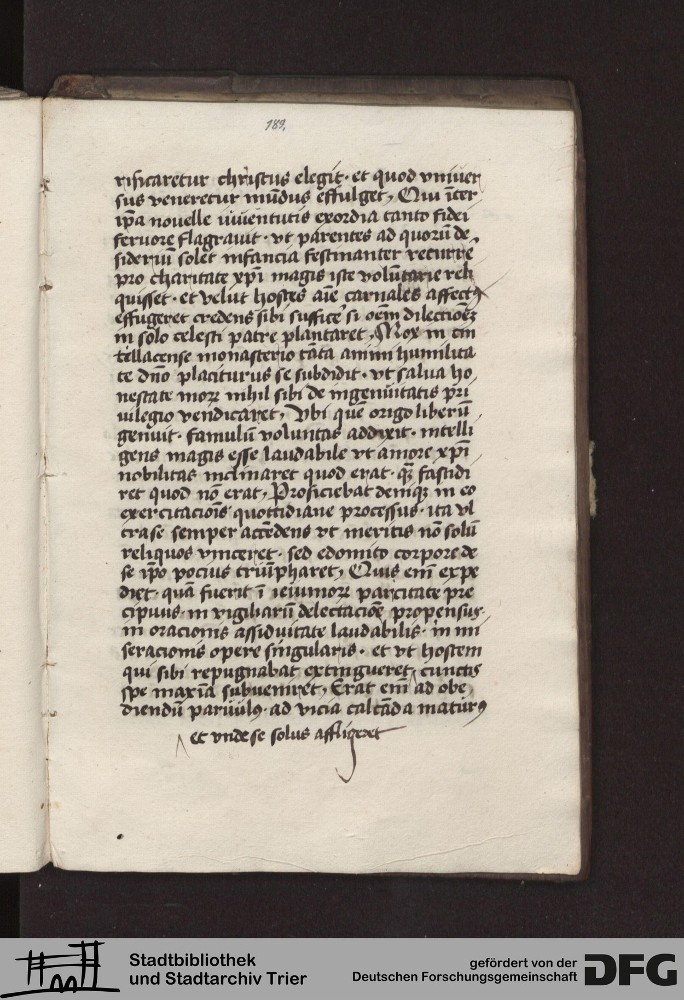 189,
rificaretur christus elegit · et quod vniuer
sus veneretur mūdus effulget, Qui īter
ip̄a nouelle iuuentutis exordia tanto fidei
feruore flagrauit · vt parentes ad quorū de
sideriū solet infancia festinanter recurre
pro charitate xp̄i magis iste volūtarie reli
quisset · et velut hostes aīe carnales affectꝰ
effugeret credens sibi sufficē si oēm dilectioēȝ
in solo celesti patre plantaret, Mox in cin
tellacense monasterio tāta animi humilita
te dn̄o placiturus se subdidit · vt salua ho
nestate morꝝ nihil sibi de ingenuitatis pri
uilegio vendicaret, Vbi quē origo liberū
genuit · famulū voluntas addixit · intelli
gens magis esse laudabile vt amore xp̄i
nobilitas inclinaret quod erat · qȝ fastidi
ret quod nō erat, Proficiebat deniqȝ in eo
exercitacioīs quottidiane processus · ita vl
cra se semper accēdens vt meritis nō solū
reliquos vinceret · sed edomito corpore de
se ip̄o pocius triūpharet, Quis em̄ expe
diet · quā fuerit ī ieiuniorꝝ parcitate pre
cipuus · in vigiliarū delectacioē propensus ·
in oracionis assiduitate laudabilis · in mi
seracionis opere singularis · et vt hostem
qui sibi repugnabat extingueret ^ cunctis
spe maxīa subueniret, Erat em̄ ad obe
diendū paruulꝰ · ad vicia calcāda maturꝰ
^ et vnde se solus affligeret
Stadtbibliothek
und Stadtarchiv Trier
gefördert von der
Deutschen Forschungsgemeinschaft
DFG